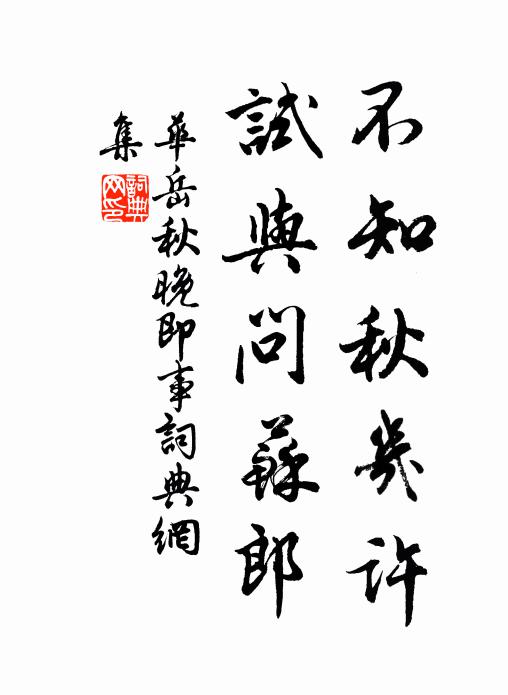 不知秋幾許
試與問蘇郎
華岳秋晚即事詞典網
集
詞典
网印